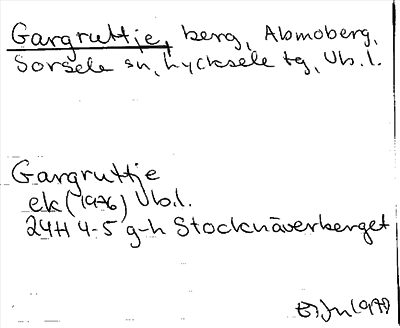 Gargruttje, berg, Abmoberg,
Sorsele sn, Lycksele tg, Vb. l.
Gargruttje
ek (1976) Vb.l.
24H 4-5 g-h Stocknäverberget